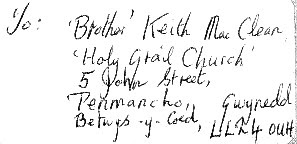 To: 'Brother' Keith Mac Clean,
'Holy Grail Church'
5 John Street,
'Penmancho,, Gwynedd
Betwys-y-Coed, LL24 0UH